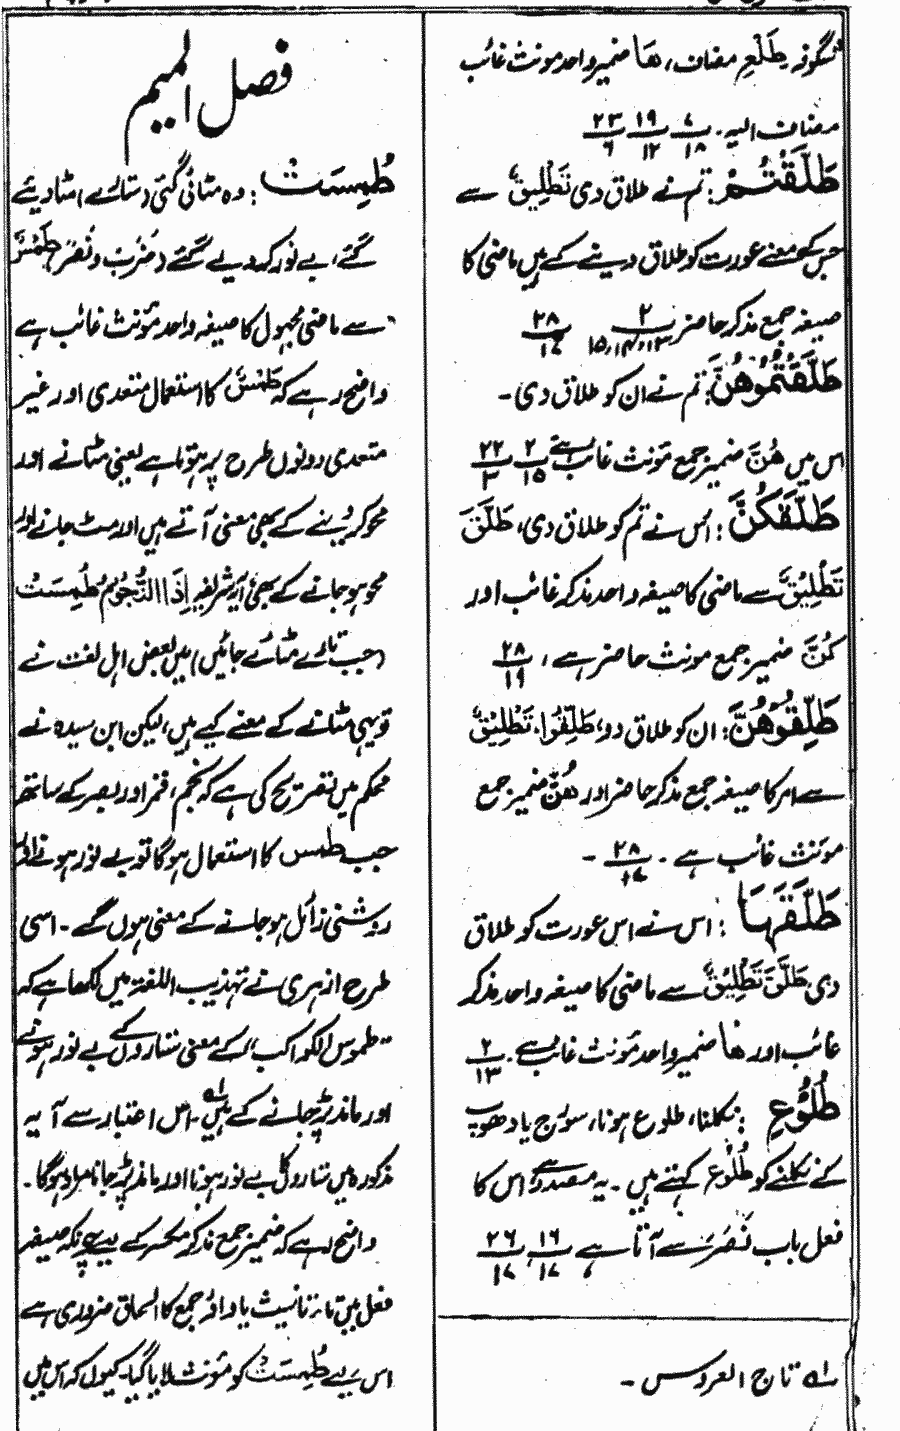 شگوفہ طَلْعِ مضاف، هَا ضمیر واحد مونث غائب
مضاف الیہ۔ ۷/۱۸ ۱۹/۱۲ ۲۳/۶
طَلَّقْتُمْ: تم نے طلاق دی تَطْلِیْقٌ سے
جس کے معنے عورت کو طلاق دینے کے ہیں ماضی کا
صیغہ جمع مذکر حاضر ۲/۱۳،۱۴،۱۵ ۲۸/۱۷
طَلَّقْتُمُوْهُنَّ: تم نے ان کو طلاق دی۔
اس میں هُنَّ ضمیر جمع مؤنث غائب ہے ۲/۱۵ ۲۲/۳
طَلَّقَكُنَّ: اس نے تم کو طلاق دی، طَلَّقَ
تَطْلِیْقٌ سے ماضی کا صیغہ واحد مذکر غائب اور
كُنَّ ضمیر جمع مونث حاضر ہے، ۲۸/۱۹
طَلِّقُوْهُنَّ: ان کو طلاق دو، طَلِّقُوْا، تَطْلِیْقٌ
سے امر کا صیغہ جمع مذکر حاضر اور هُنَّ ضمیر جمع
مؤنث غائب ہے۔ ۲۸/۱۷۔
طَلَّقَهَا: اس نے اس عورت کو طلاق
دی طَلَّقَ تَطْلِیْقٌ سے ماضی کا صیغہ واحد مذکر
غائب اور هَا ضمیر واحد مؤنث غائب ہے۔ ۲/۱۳
طُلُوْعِ: نکلنا، طلوع ہونا، سورج یا دھوپ
کے نکلنے کو طُلُوْع کہتے ہیں۔ یہ مصدر ہے اس کا
فعل باب نَصَرَ سے آتا ہے ۱۶/۱۷، ۲۶/۱۷
لہ تاج العروس۔
فصل المیم
طُمِسَتْ: وہ مٹائی گئی (ستارے) مٹا دیئے
گئے، بے نور کر دیے گئے (ضَرَبَ و نَصَرَ) طَمْسٌ
سے ماضی مجہول کا صیغہ واحد مؤنث غائب ہے
واضح رہے کہ طَمْسٌ کا استعمال متعدی اور غیر
متعدی دونوں طرح پر ہوتا ہے یعنی مٹانے اور
محو کر دینے کے بھی معنی آتے ہیں اور مٹ جانے اور
محو ہو جانے کے بھی آیہ شریفہ اِذَا النُّجُوْمُ طُمِسَتْ
(جب تارے مٹائے جائیں) میں بعض اہل لغت نے
تو یہی مٹانے کے معنے کیے ہیں، لیکن ابن سیدہ نے
محکم میں تصریح کی ہے کہ نجم، قمر اور بصر کے ساتھ
جب طمس کا استعمال ہوگا تو بے نور ہونے اور
روشنی زائل ہو جانے کے معنی ہوں گے۔ اسی
طرح ازہری نے تہذیب اللغۃ میں لکھا ہے کہ
"طموس الکواکب" کے معنی ستاروں کے بے نور ہونے
اور ماند پڑ جانے کے ہیں لہ۔ اس اعتبار سے آیہ
مذکورہ میں ستاروں کا بے نور ہونا اور ماند پڑ جانا مراد ہوگا۔
واضح رہے کہ ضمیر جمع مذکر مکسر کے لیے چونکہ صیغہ
فعل میں تاء تانیث یا واو جمع کا الحاق ضروری ہے
اس لیے طُمِسَتْ کو مؤنث لایا گیا۔ کیوں کہ اس میں